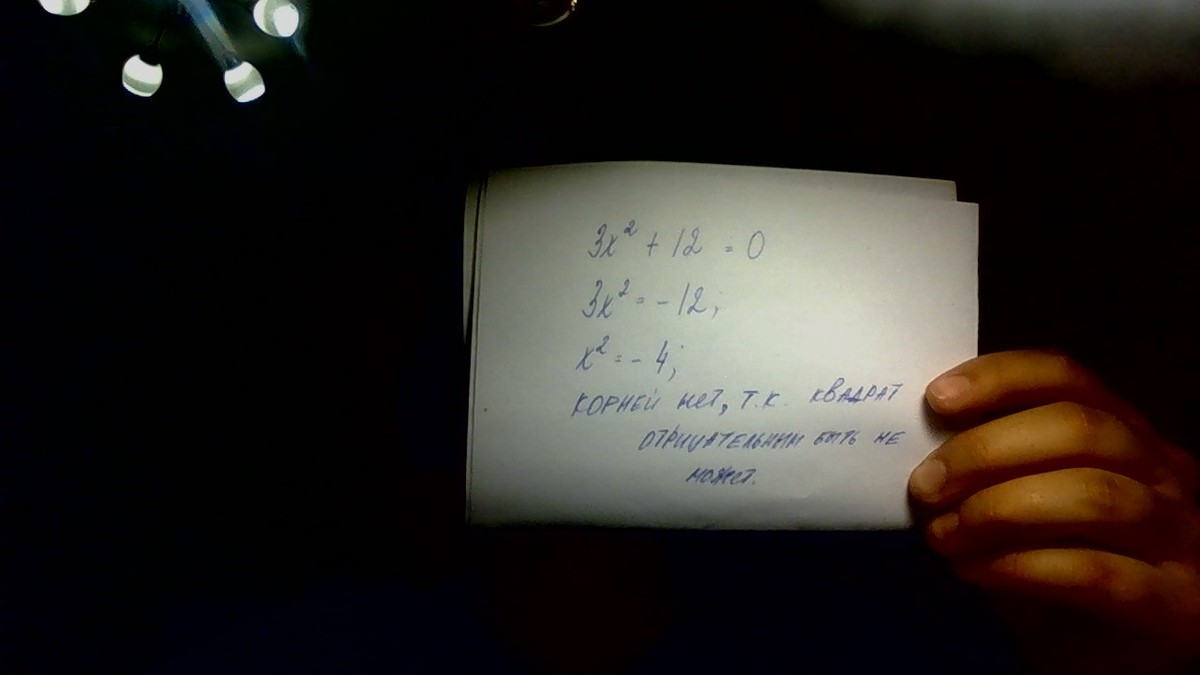 3x² + 12 = 0
3x² = -12;
x² = -4;
корней нет, т.к. квадрат
отрицательным быть не
может.